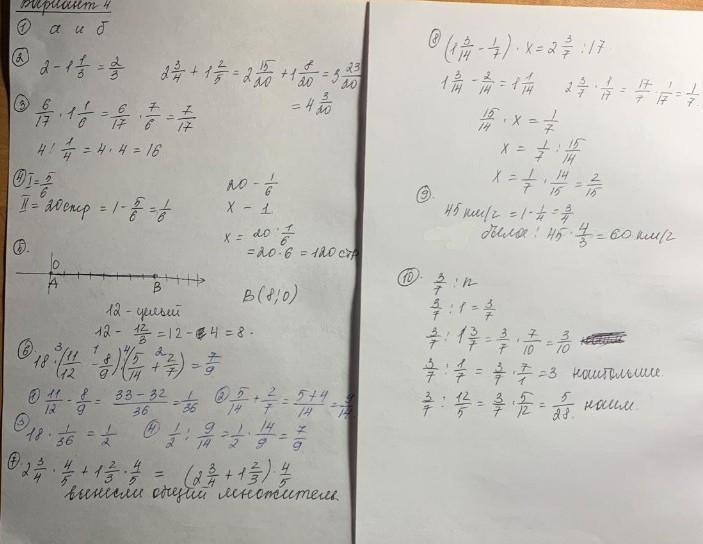 Вариант 4
① а и б
② 2 - 1 1/3 = 2/3   2 3/4 + 1 2/5 = 2 15/20 + 1 8/20 = 3 23/20
= 4 3/20
③ 6/17 · 1 1/6 = 6/17 · 7/6 = 7/17
4 : 1/4 = 4 · 4 = 16
④ I = 5/6
II = 20 стр = 1 - 5/6 = 1/6
20 - 1/6
x - 1
x = 20 : 1/6
= 20 · 6 = 120 стр
⑤.
O
A   B
B (8;0)
12 - целый
12 - 12/3 = 12 - 4 = 8.
⑥ 18 ·³ (11/12 -¹ 8/9) :⁴ (5/14 +² 2/7) = 7/9
① 11/12 - 8/9 = 33-32/36 = 1/36   ② 5/14 + 2/7 = 5+4/14 = 9/14
③ 18 · 1/36 = 1/2   ④ 1/2 : 9/14 = 1/2 · 14/9 = 7/9
⑦ 2 3/4 · 4/5 + 1 2/3 · 4/5 = (2 3/4 + 1 2/3) · 4/5
вынесли общий множитель
⑧ (1 3/14 - 1/7) · x = 2 3/7 : 17
1 3/14 - 2/14 = 1 1/14   2 3/7 · 1/17 = 17/7 · 1/17 = 1/7.
15/14 · x = 1/7
x = 1/7 : 15/14
x = 1/7 · 14/15 = 2/15
⑨
45 км/г = 1 - 1/4 = 3/4
было: 45 · 4/3 = 60 км/г
⑩. 3/7 : n
3/7 : 1 = 3/7
3/7 : 1 3/7 = 3/7 · 7/10 = 3/10
3/7 : 1/7 = 3/7 · 7/1 = 3 наибольшее.
3/7 : 12/5 = 3/7 · 5/12 = 5/28. наим.